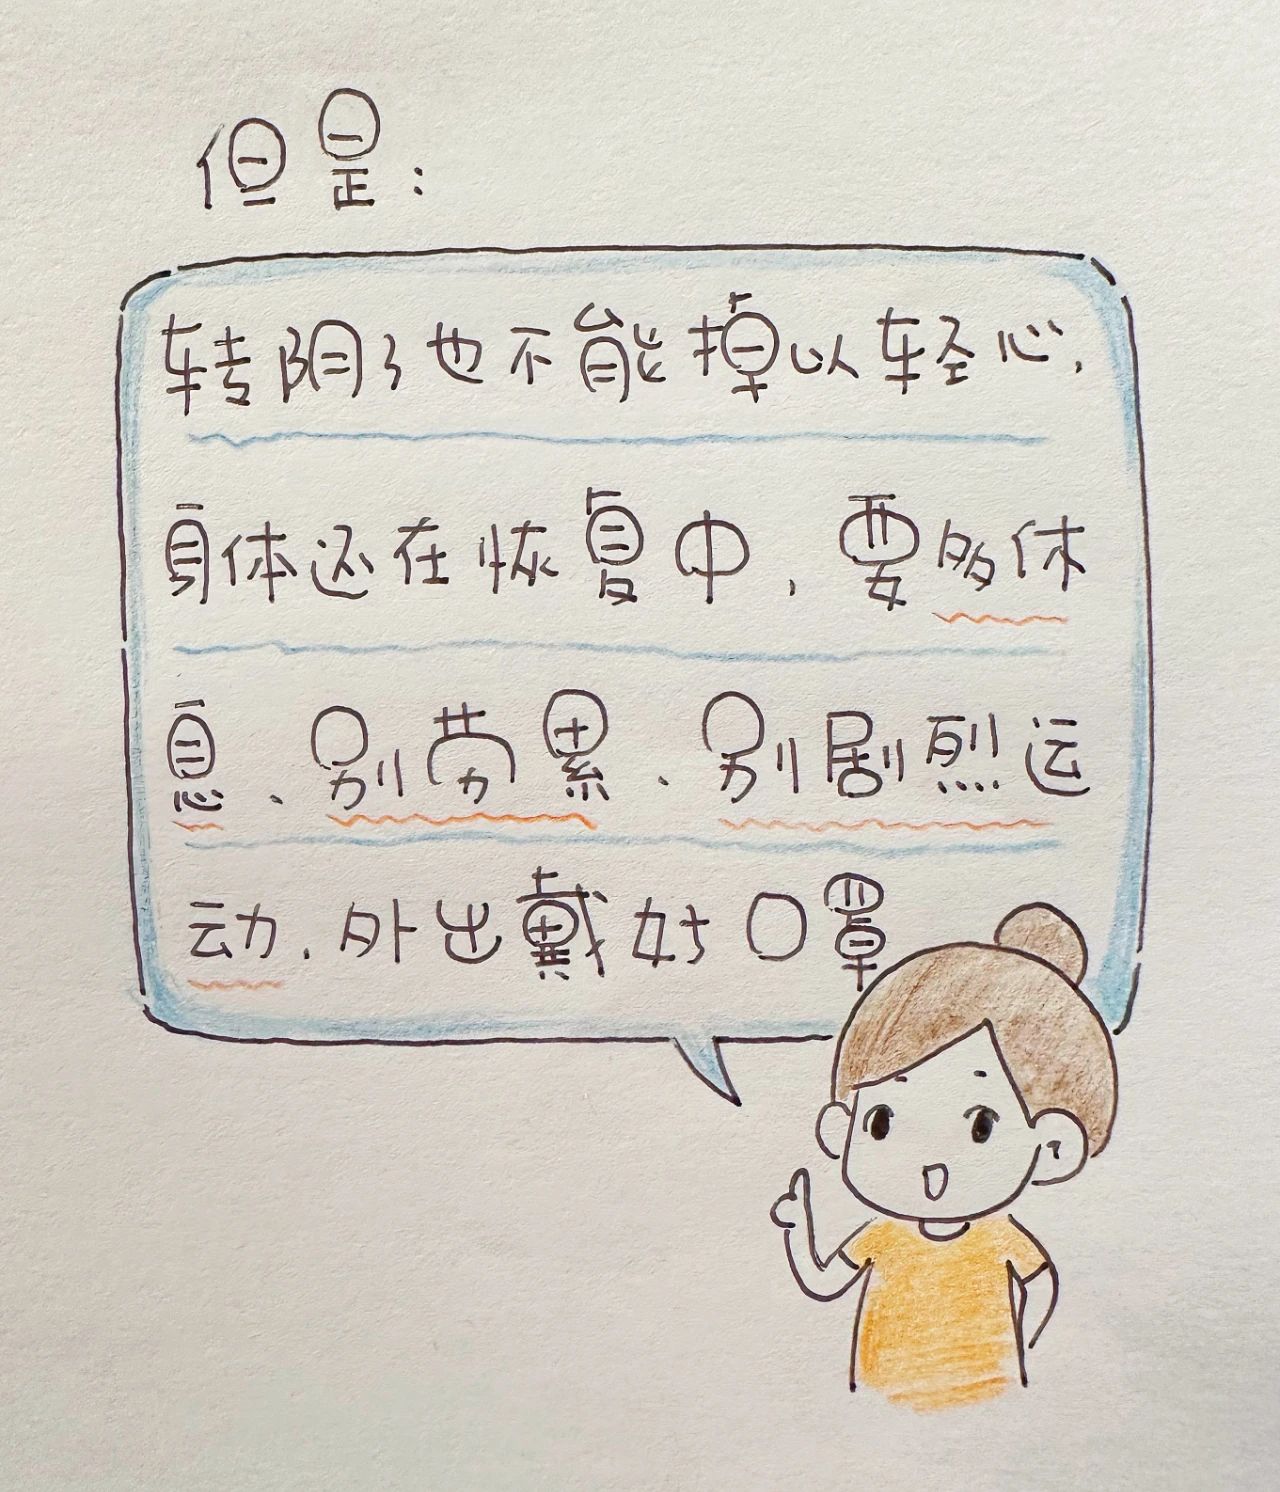 但是：
转阴了也不能掉以轻心，
身体还在恢复中，要多休
息、别劳累、别剧烈运
动，外出戴好口罩